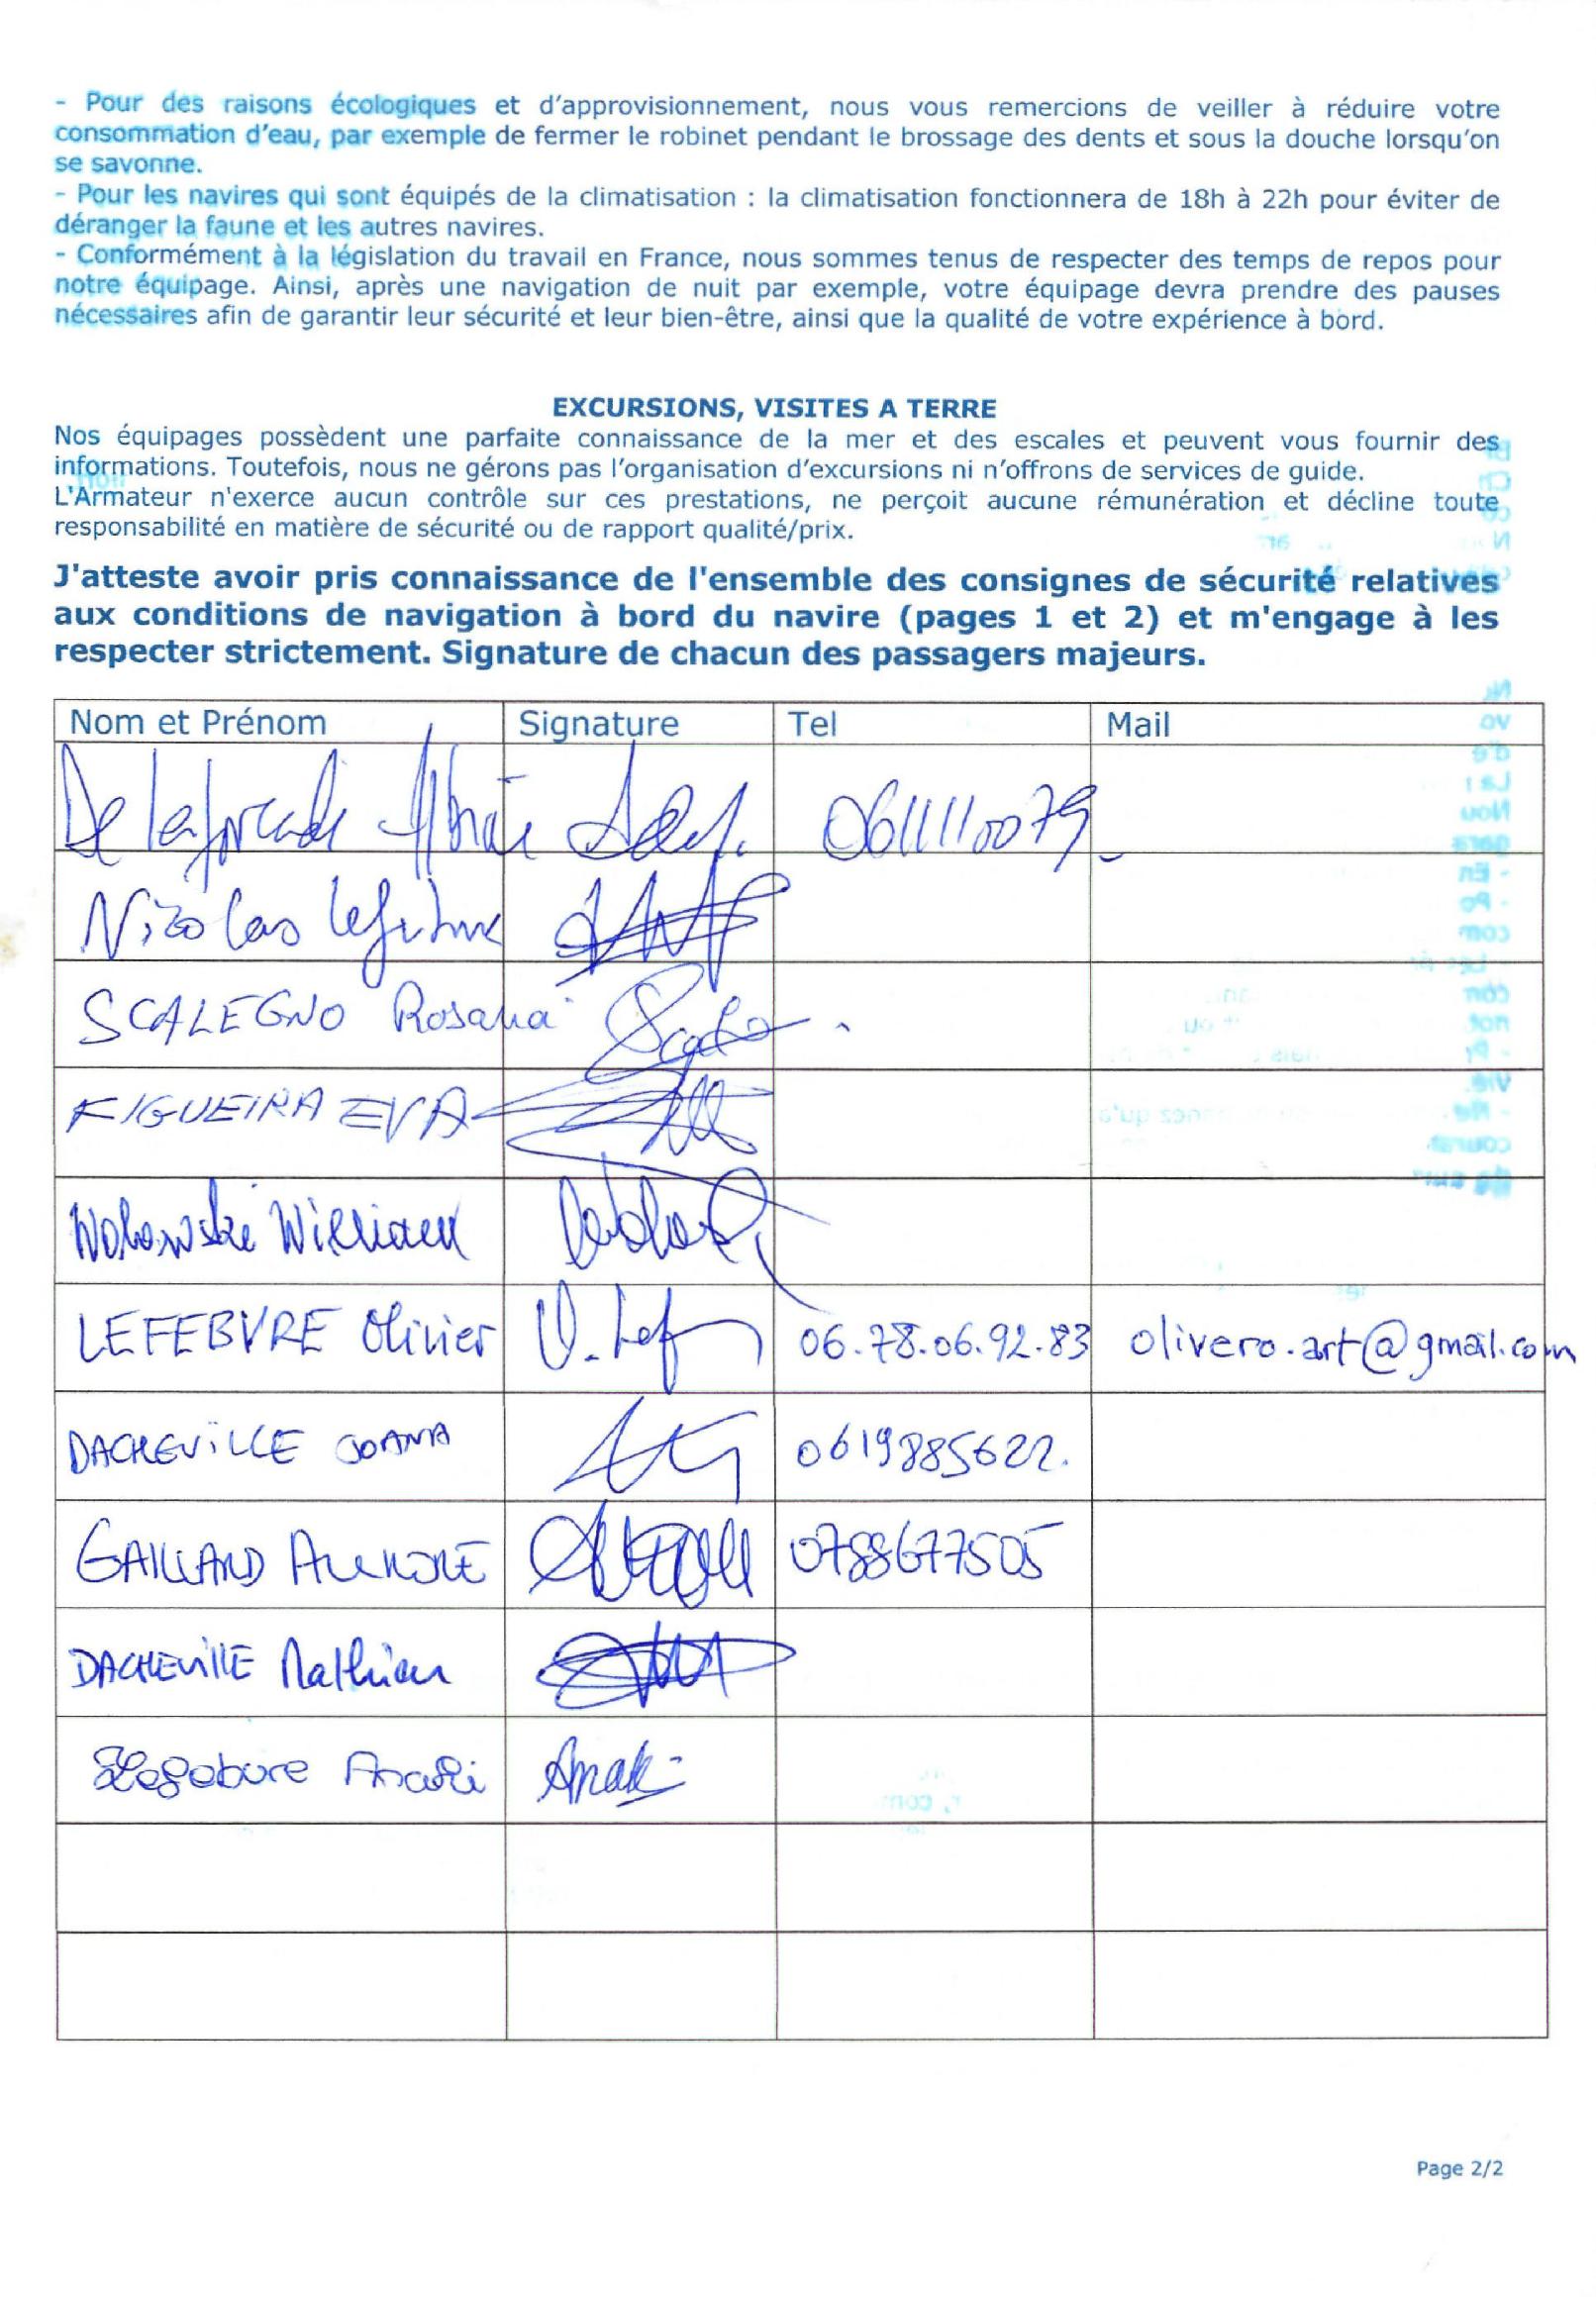 - Pour des raisons écologiques et d'approvisionnement, nous vous remercions de veiller à réduire votre
consommation d'eau, par exemple de fermer le robinet pendant le brossage des dents et sous la douche lorsqu'on
se savonne.
- Pour les navires qui sont équipés de la climatisation : la climatisation fonctionnera de 18h à 22h pour éviter de
déranger la faune et les autres navires.
- Conformément à la législation du travail en France, nous sommes tenus de respecter des temps de repos pour
notre équipage. Ainsi, après une navigation de nuit par exemple, votre équipage devra prendre des pauses
nécessaires afin de garantir leur sécurité et leur bien-être, ainsi que la qualité de votre expérience à bord.
EXCURSIONS, VISITES A TERRE
Nos équipages possèdent une parfaite connaissance de la mer et des escales et peuvent vous fournir des
informations. Toutefois, nous ne gérons pas l'organisation d'excursions ni n'offrons de services de guide.
L'Armateur n'exerce aucun contrôle sur ces prestations, ne perçoit aucune rémunération et décline toute
responsabilité en matière de sécurité ou de rapport qualité/prix.
J'atteste avoir pris connaissance de l'ensemble des consignes de sécurité relatives
aux conditions de navigation à bord du navire (pages 1 et 2) et m'engage à les
respecter strictement. Signature de chacun des passagers majeurs.
Nom et Prénom Signature Tel Mail
0611110079
Nicolas
SCALEGNO Rosana
FIGUEIRA EVA
Wolowski William
LEFEBVRE Olivier O. Lef 06.78.06.92.83 olivero.art@gmail.com
DACHEVILLE JOANA 0619885622.
GAILLARD AURORE 0788677505
DACHEVILLE Mathieu
Anaki
Page 2/2